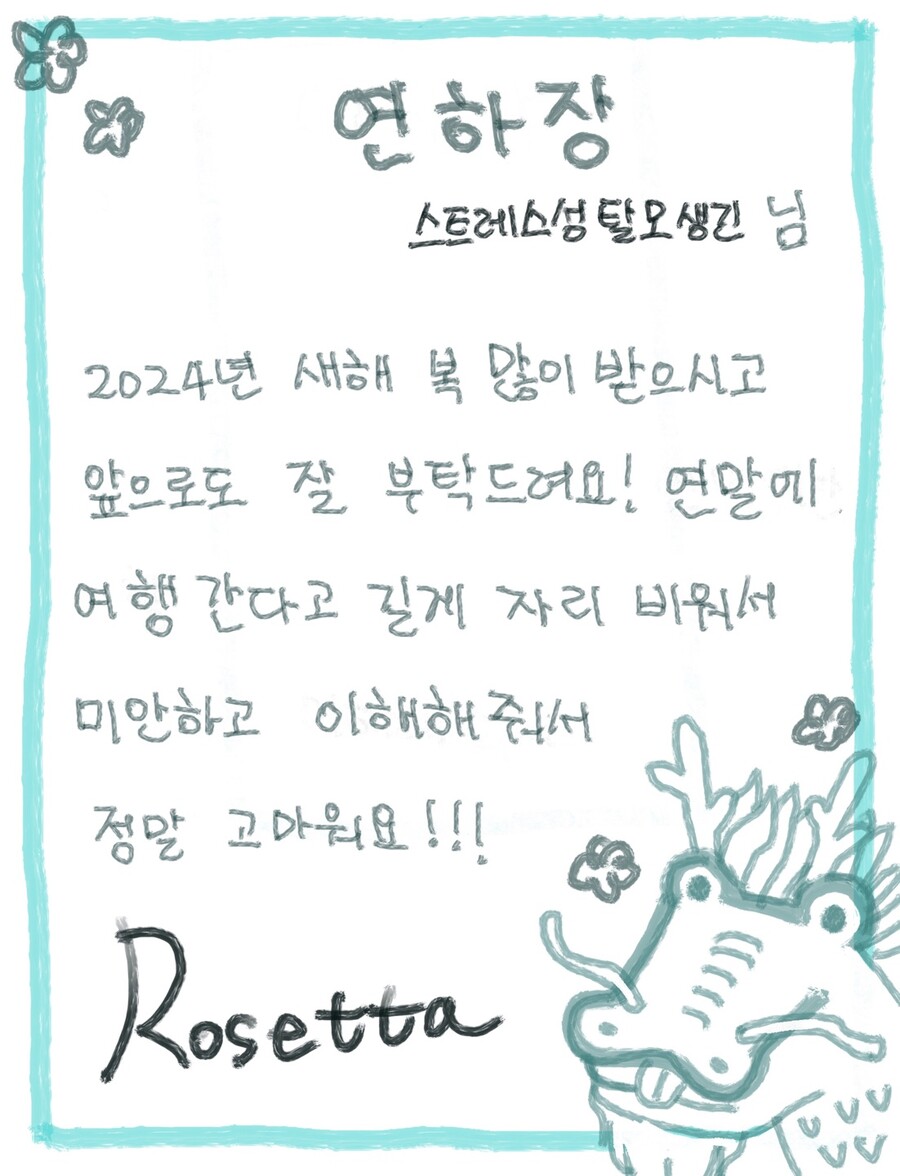 연하장
스트레스성 탈모 생긴 님
2024년 새해 복 많이 받으시고
앞으로도 잘 부탁드려요! 연말에
여행 간다고 길게 자리 비워서
미안하고 이해해줘서
정말 고마워요!!!
Rosetta